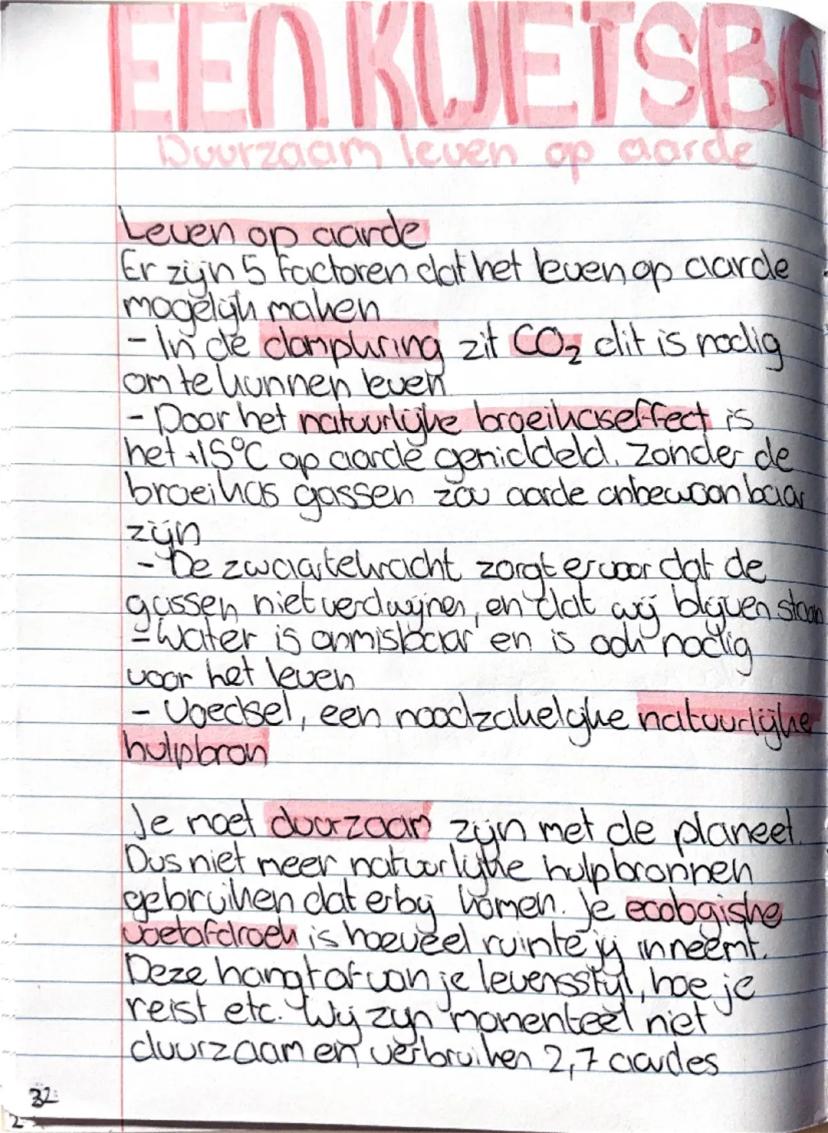 EEN KWETSBA
Duurzaam leven op aarde
Leven op aarde
Er zijn 5 factoren dat het leven op aarde
mogelijk maken
- In de dampkring zit CO₂ dit is nodig
om te kunnen leven
- Door het natuurlijke broeikaseffect is
het +15°C op aarde gemiddeld. Zonder de
broeikas gassen zou aarde onbewoonbaar
zijn
- De zwaartekracht zorgt ervoor dat de
gassen niet verdwijnen, en dat wij blijven staan
- Water is onmisbaar en is ook nodig
voor het leven
- Voedsel, een noodzakelijke natuurlijke
hulpbron
Je moet duurzaam zijn met de planeet.
Dus niet meer natuurlijke hulpbronnen
gebruiken dat erbij komen. Je ecologishe
voetafdroek is hoeveel ruimte jij inneemt.
Deze hangt af van je levensstijl, hoe je
reist etc. Wij zijn momenteel niet
duurzaam en verbruiken 2,7 aardes
32
2